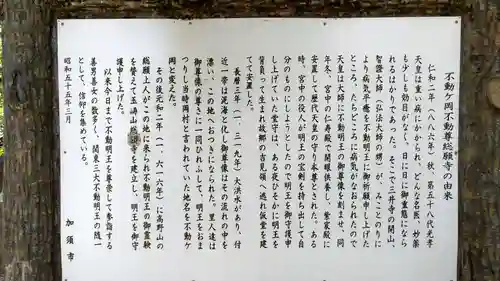 不動ケ岡不動尊総願寺の由来
仁和二年(八八六年)秋、第五十八代光孝
天皇は重い病にかかられ、どんな名医、妙薬
も少しも効目がなく、日に日に御重態になら
れるばかりであった。そこで三井寺の開山、
智證大師(弘法大師の甥)が、みことのりに
より病気平癒を不動明王に御祈願申し上げた
ところ、たちどころに病気がなおられたので
天皇は大師に不動明王の御尊像を刻ませ、同
年冬、宮中の仁寿殿で開眼供養し、紫宸殿に
安置して歴代天皇の守り本尊とされた。ある
時、宮中の役人が明王の宝剣を持ち出して自
分のものにしようとしたので明王を御守護申
し上げていた堂守は、ある夜ひそかに明王を
背負って生まれ故郷の吉見領へ逃れ仮堂を建
てて安置した。
長暦三年(一〇三九年)大洪水があり、付
近一帯は泥海と化し御尊像は水の流れの中を
漂い、この地へおつきになられた。里人達は
御尊像の尊さに一同ひれふして、明王をおま
つりし当時岡村と言われていた地名を不動ヶ
岡と変えた。
その後元和二年(一、六一六年)に高野山の
総願上人がこの地に来られ不動明王の御霊験
を讃えて玉嶹山総願寺を建立し、明王を御守
護申し上げた。
以来今日まで不動明王を尊崇して参詣する
善男善女の数多く、関東三大不動明王の一つ
として、信仰を集めている。
昭和五十五年三月
加須市